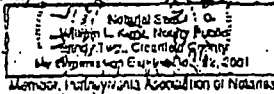 Notarial Seal
William L. Notary Public
Sandy Twp., Clearfield County
My Commission Expires 2001
Member, Pennsylvania Association of Notaries